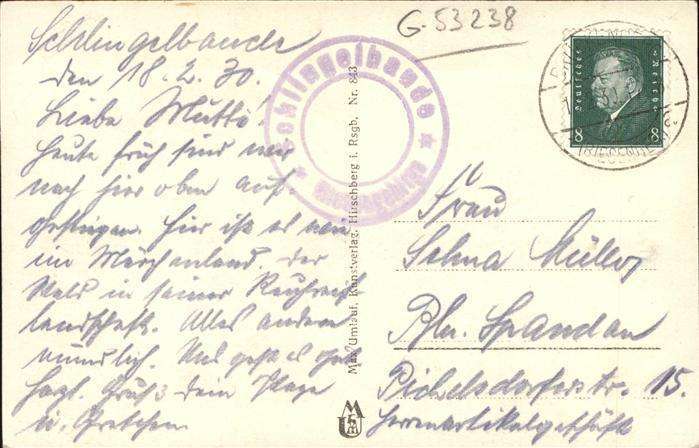 G-53238
Schlingelbaude
den 18.2.30.
Liebe Mutti!
Heute früh sind wir
nach hier oben auf-
gestiegen. Hier ist es wie
im Märchenland. Der
Wald in seiner Rauhreif
landschaft. Alles andere
mündlich. Uns geht es
Gruß Dein
u. Gretchen
Schlingelbaude
Max Umlauf, Kunstverlag, Hirschberg i. Rsgb. Nr. 843
MU
Deutsches Reich
8 8
Frau
Selma Müller
Bln. Spandau
Pichelsdorferstr. 15.
Herrenartikelgeschäft